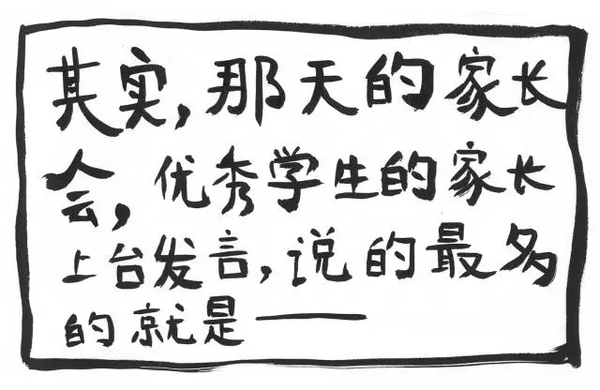 其实,那天的家长
会,优秀学生的家长
上台发言,说的最多
的就是——